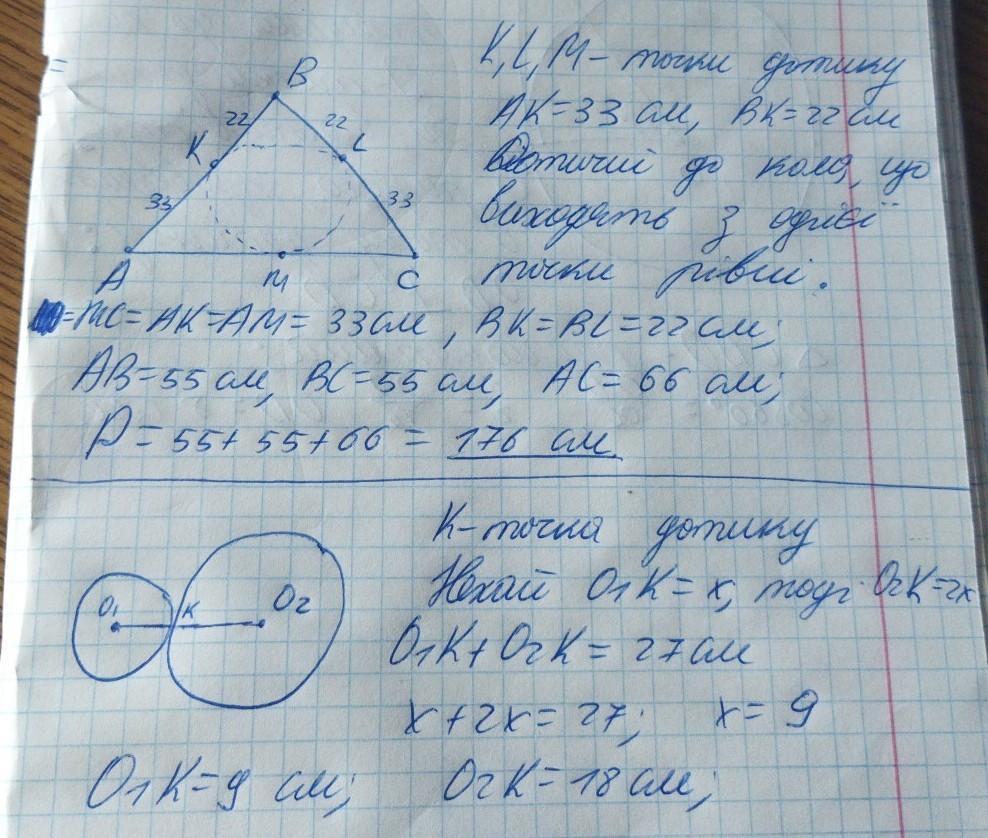 B
22
22
K
L
33
33
A
M
C
K, L, M - точки дотику
AK=33 см, BK=22 см
Дотичні до кола, що
виходять з однієї
точки рівні.
=MC=AK=AM= 33 см, BK=BL=22 см;
AB=55 см, BC=55 см, AC= 66 см;
P = 55+55+66 = 176 см
K-точка дотику
Нехай O1K=x, тоді O2K=2x
O1
K
O2
O1K+O2K= 27 см
x+2x= 27; x= 9
O1K=9 см; O2K=18 см;